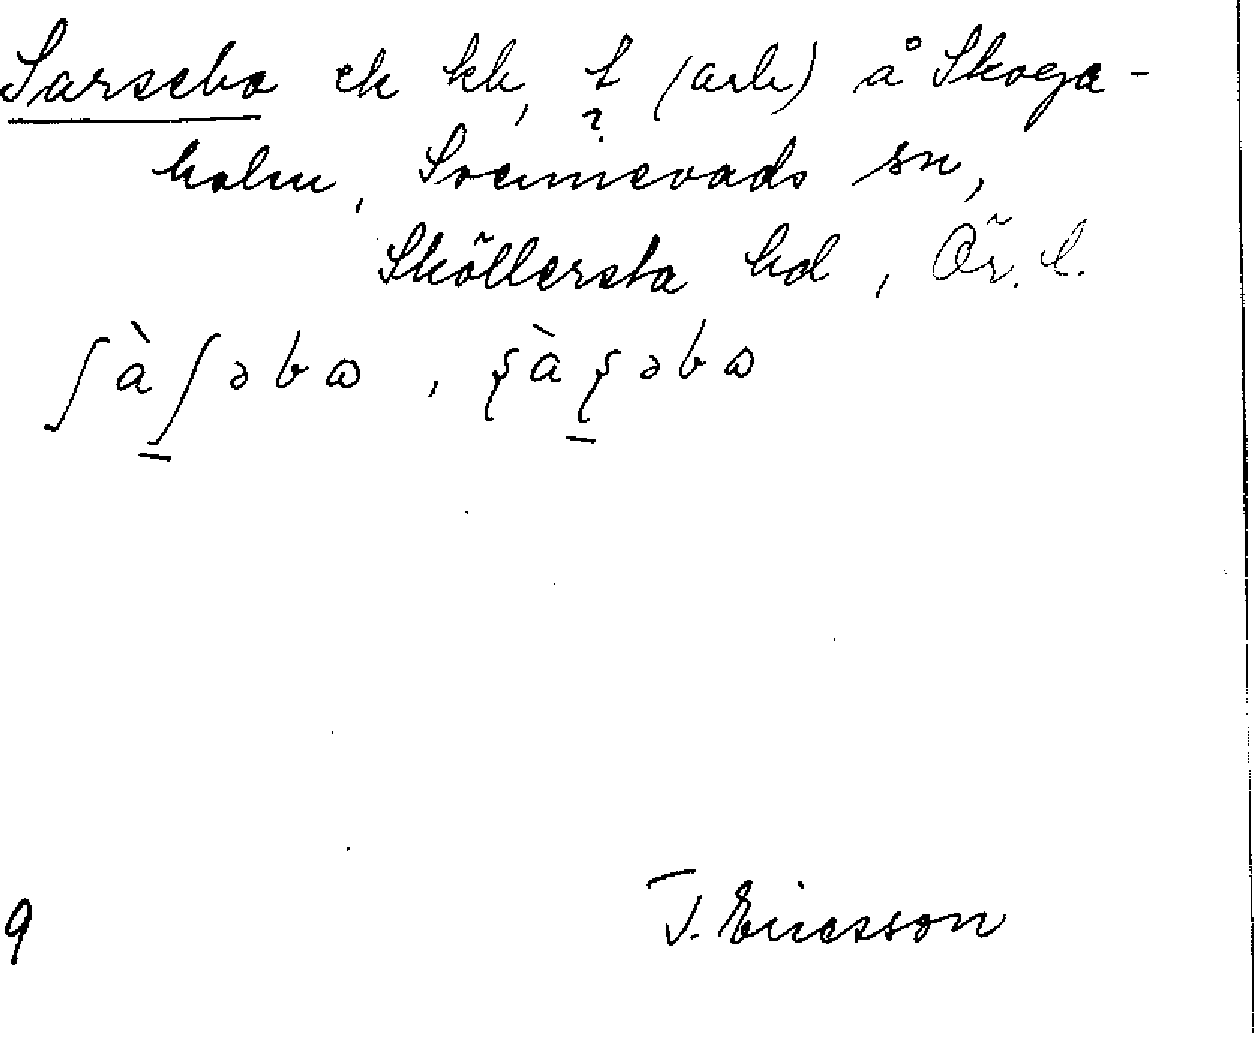 Sarsebo ek kk, t (arb) å Skoga-
?
holm, Svennevads sn,
Sköllersta hd, Ör. l.
ʃàʃəbɷ, ʂàʂəbɷ
9 T. Ericsson